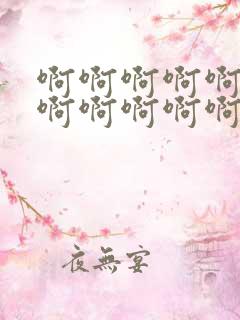 啊啊啊啊啊
啊啊啊啊啊
夜無宴